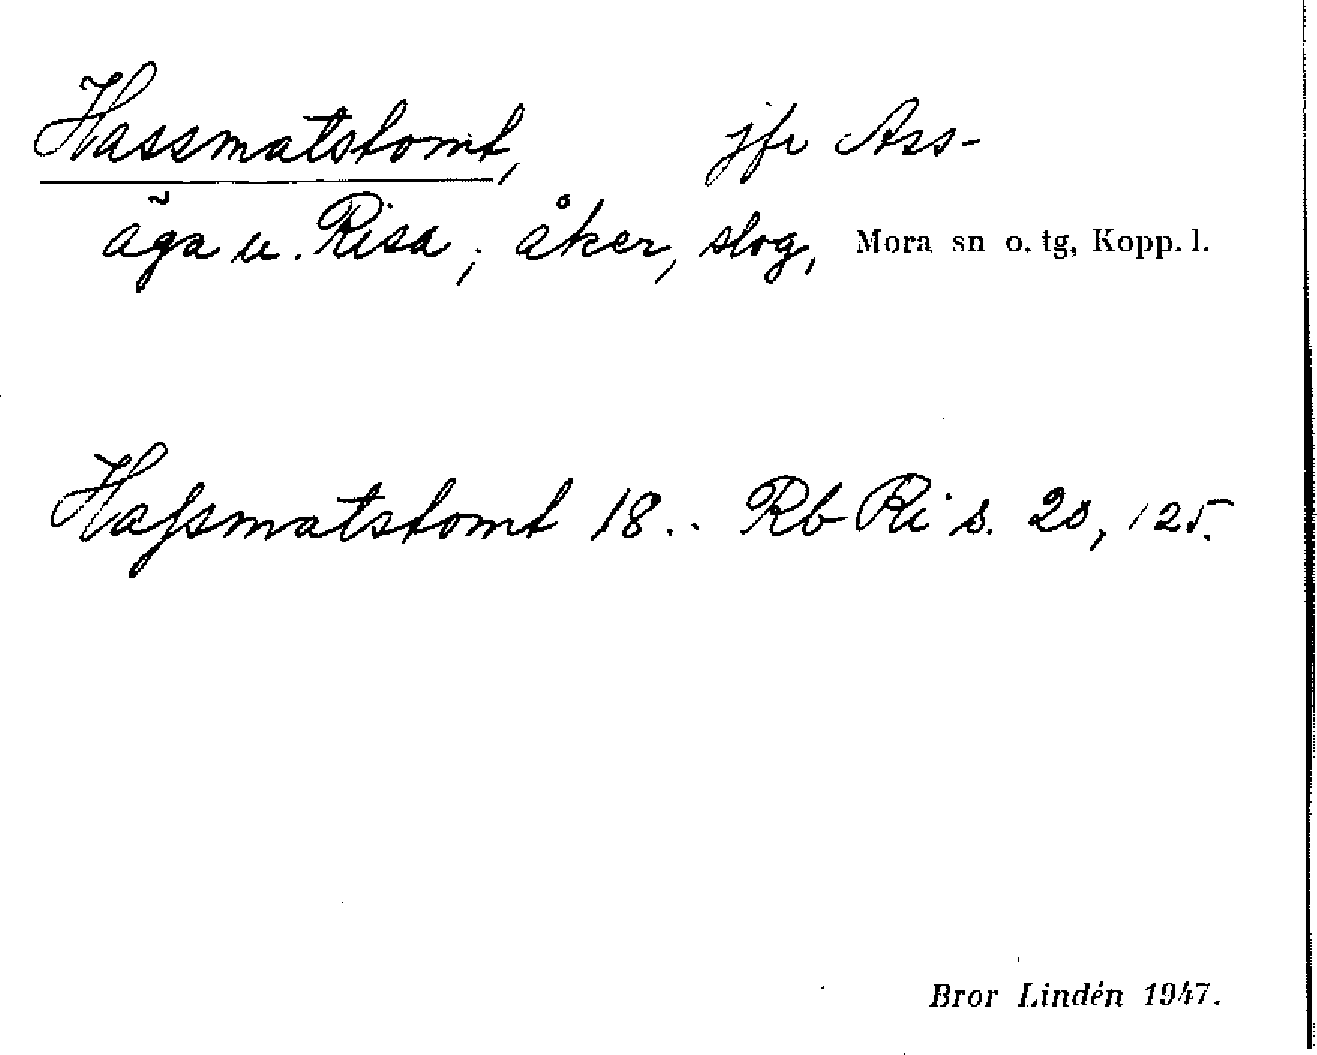 Hassmatstomt, jfr Ass-
äga u. Risa; åker, slog, Mora sn o. tg, Kopp. l.
Hassmatstomt 18.. Rb Ri s. 20, 125.
Bror Lindén 1947.